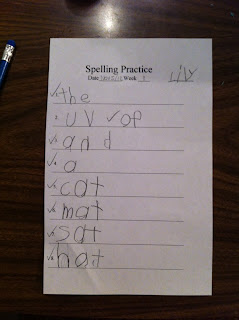 Spelling Practice
Date Week 1
the
uv of
and
a
cat
mat
sat
hat